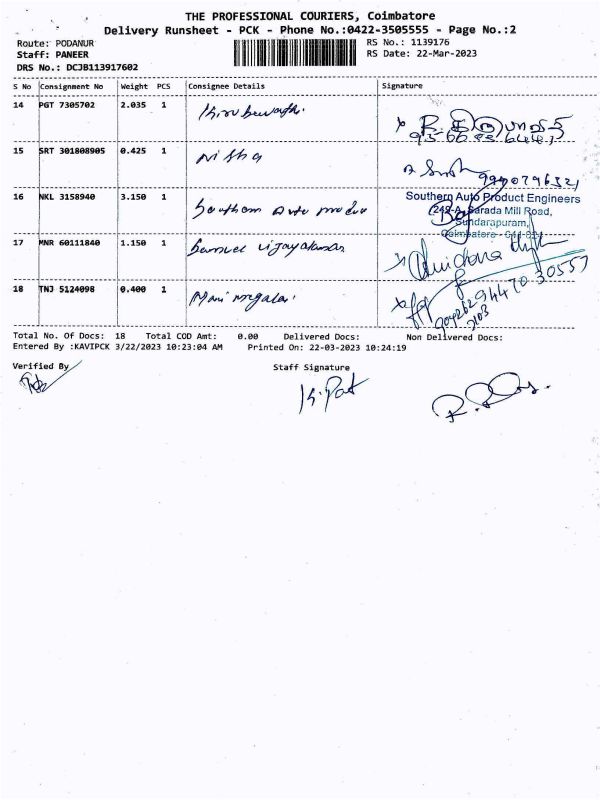 THE PROFESSIONAL COURIERS, Coimbatore
Delivery Runsheet - PCK - Phone No.:0422-3505555 - Page No.:2
Route: PODANUR RS No.: 1139176
Staff: PANEER RS Date: 22-Mar-2023
DRS No.: DCJB113917602
S No Consignment No Weight PCS Consignee Details Signature
14 PGT 7305702 2.035 1
15 SRT 301808905 0.425 1 nitha
9940796321
16 NKL 3158940 3.150 1 Southern Auto produ
Southern Auto Product Engineers
Sarada Mill Road,
Sundarapuram,
Coimbatore
17 MNR 60111840 1.150 1 Samuel vijayakumar
30557
18 TNJ 5124098 0.400 1 Mani megalai
Total No. Of Docs: 18 Total COD Amt: 0.00 Delivered Docs: Non Delivered Docs:
Entered By :KAVIPCK 3/22/2023 10:23:04 AM Printed On: 22-03-2023 10:24:19
Verified By Staff Signature